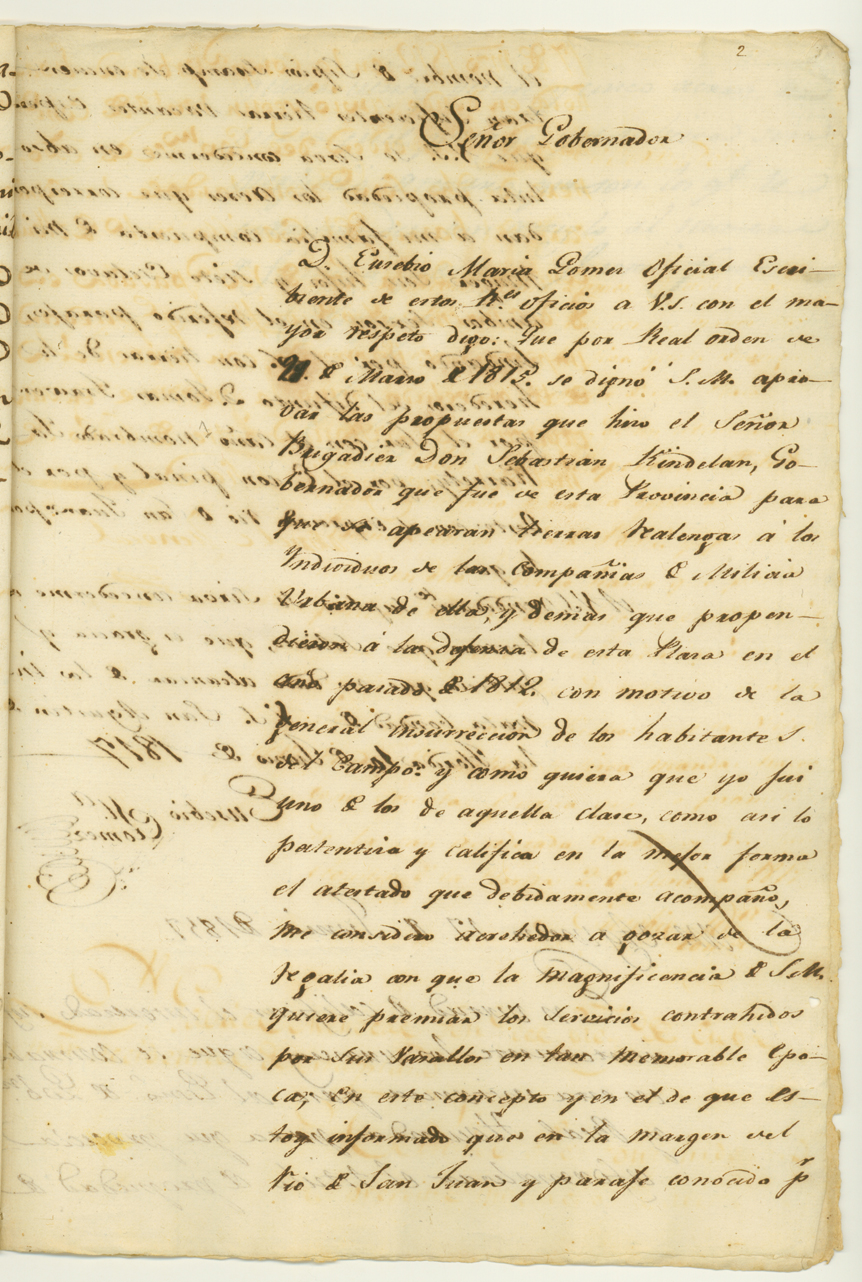 2
Señor Gobernador
D. Eusebio Maria Gomez Oficial Escri-
biente de estos R.s oficios a V.S. con el ma-
yor respeto digo: Que por Real orden de
29. de Marzo de 1815. se dignó S.M. apro-
var las propuestas que hizo el Señor
Brigadier Don Sebastian Kindelan, Go-
bernador que fue de esta Provincia para
que se apearan tierras Realengas á los
Individuos de las Compañias de Milicia
Urbana de ella, y demas que propen-
dieron á la defensa de esta Plaza en el
año pasado de 1812. con motivo de la
general insurreccion de los habitantes
del Campo: y como quiera que yo fui
uno de los de aquella clase, como asi lo
patentiza y califica en la mejor forma
el atestado que debidamente acompaño,
me considero acrehedor a gozar de la
regalia con que la magnificencia de S.M.
quiere premiar los servicios contrahidos
por sus Vasallos en tan memorable epo-
ca; En este concepto y en el de que es-
toy informado que en la margen del
Rio de San Juan y parage conocido p.r